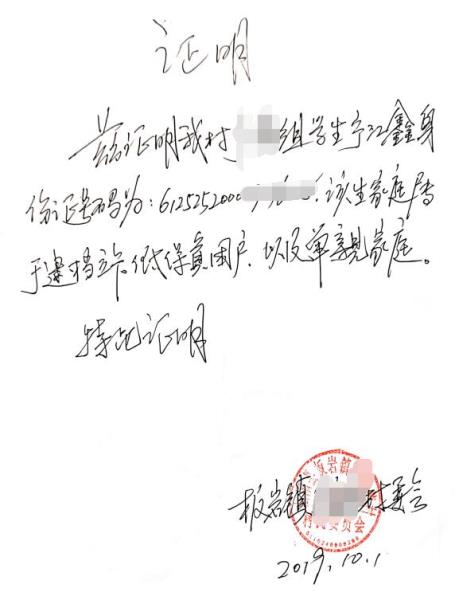 证明
兹证明我村 组学生宁江鑫身
份证号码为:6125252000 ,该生家庭属
于建档立卡低保贫困户,以及单亲家庭。
特此证明
板岩镇 村委会
2019.10.1
板岩镇
村民委员会